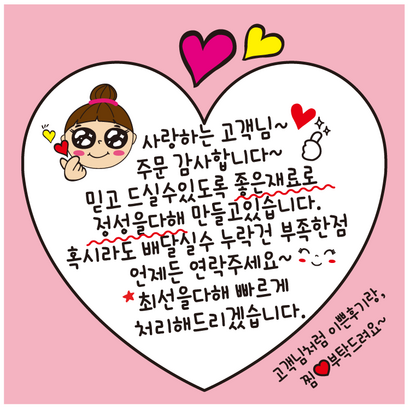 사랑하는 고객님~
주문 감사합니다~
믿고 드실수있도록 좋은재료로
정성을다해 만들고있습니다.
혹시라도 배달실수 누락건 부족한점
언제든 연락주세요~
최선을다해 빠르게
처리해드리겠습니다.
고객님처럼 이쁜후기랑,
찜♥부탁드려요~